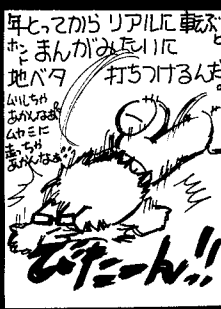 年とってから リアルに 転ぶと
ホントにまんがみたいに
地ベタ 打ちつけるんだ。
ムリしちゃ
あかんなぁ
ムヤミに
走っちゃ
あかんなぁ
びたーん!!